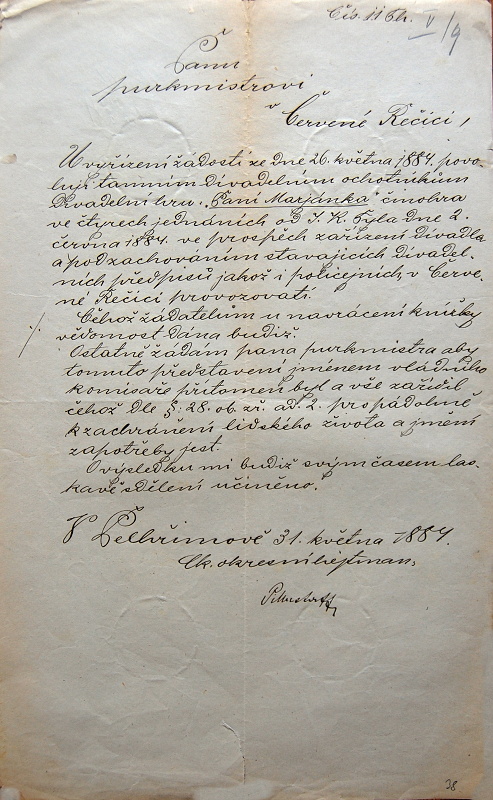 Čís. 11 Th. V/9
Panu
purkmistrovi
v Červené Řečici,
U vyřízení žádosti ze dne 26. května 1884. povo-
luji tamním divadelním ochotníkům
divadelní hru "Paní Marjánka" činohra
ve čtyrech jednáních od J. K. Tyla dne 2.
června 1884. ve prospěch zařízení divadla
a pod zachováním stávajících divadel-
ních předpisů jakož i policejních, v Červe-
né Řečici provozovati.
Čehož žadatelům u navrácení knížky
vědomost dána budiž.
Ostatně žádám pana purkmistra aby
tomuto představení jménem vládního
komisaře přítomen byl a vše zařídil
čehož dle §: 28. ob. zř. ad. 2. pro pádolně
k zachránění lidského života a jmění
zapotřeby jest.
O výsledku mi budiž svým časem las-
kavě sdělení učiněno.
V Pelhřimově 31. května 1884.
Ck. okresní hejtman,
38